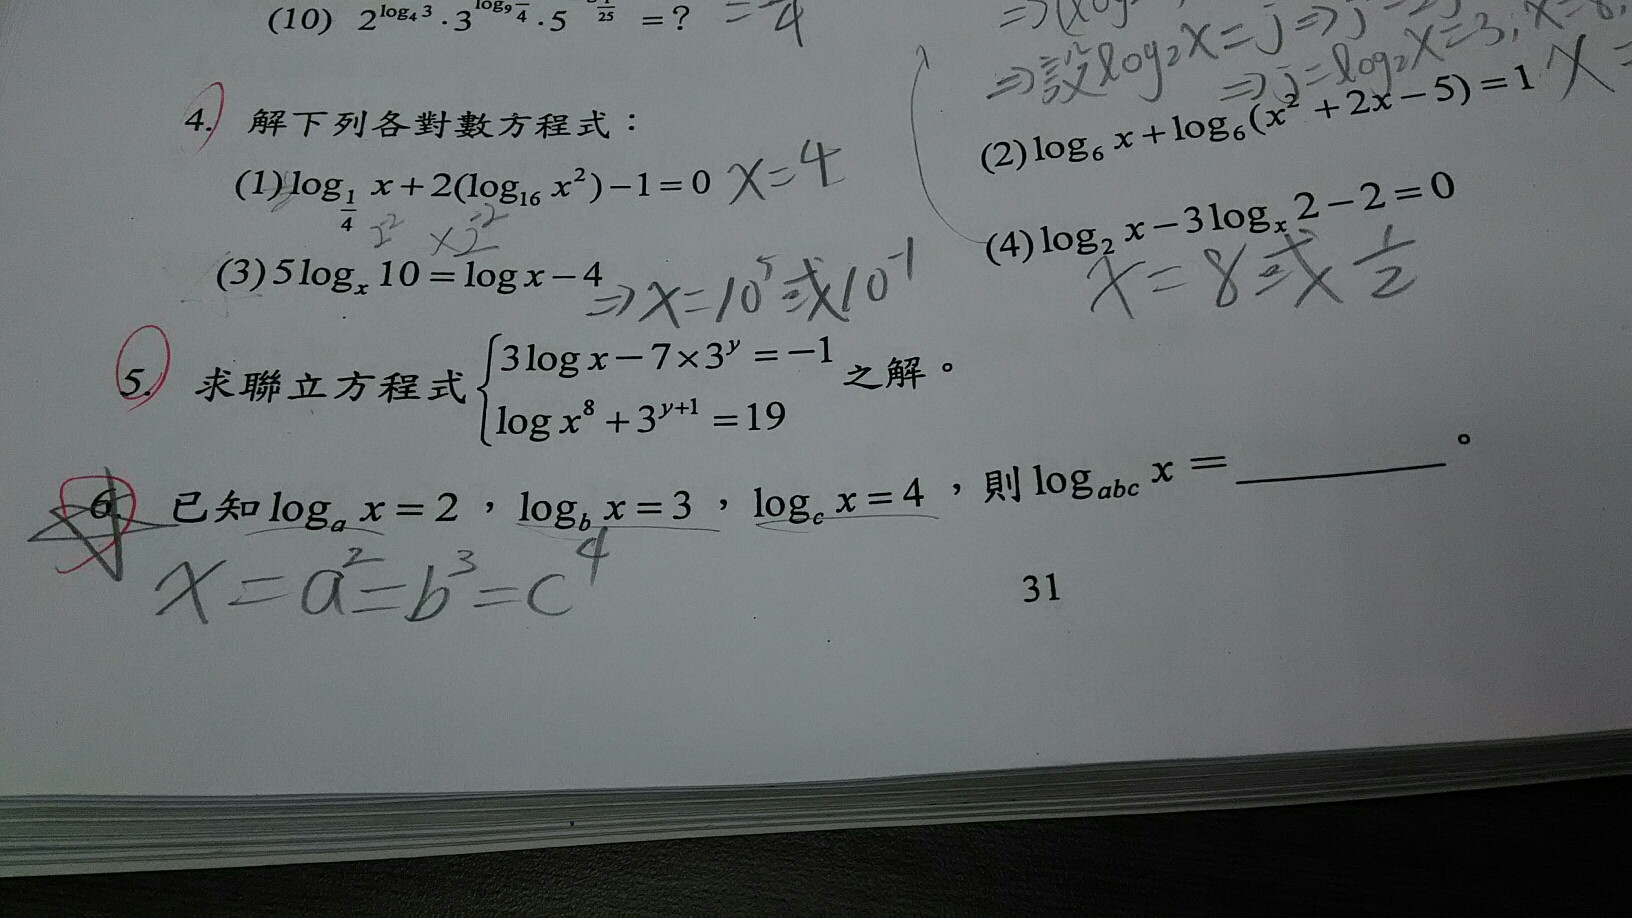 (10) 2^{log₄3}·3^{log₉ 4}·5 25 =? = 4
⇒設log₂x=j⇒j
⇒j=log₂x=3, x=8,
4. 解下列各對數方程式：
(1) log_{1/4} x+2(log₁₆ x²)−1=0 x=4
(2) log₆ x+log₆(x²+2x−5)=1 x=
(3) 5logₓ 10=log x−4 ⇒x=10⁵或10⁻¹
(4) log₂ x−3logₓ 2−2=0
x=8或1/2
5. 求聯立方程式 {3log x−7×3^y=−1 之解。
log x⁸+3^{y+1}=19
6. 已知log_a x=2，log_b x=3，log_c x=4，則log_{abc} x=________。
x=a²=b³=c⁴
31